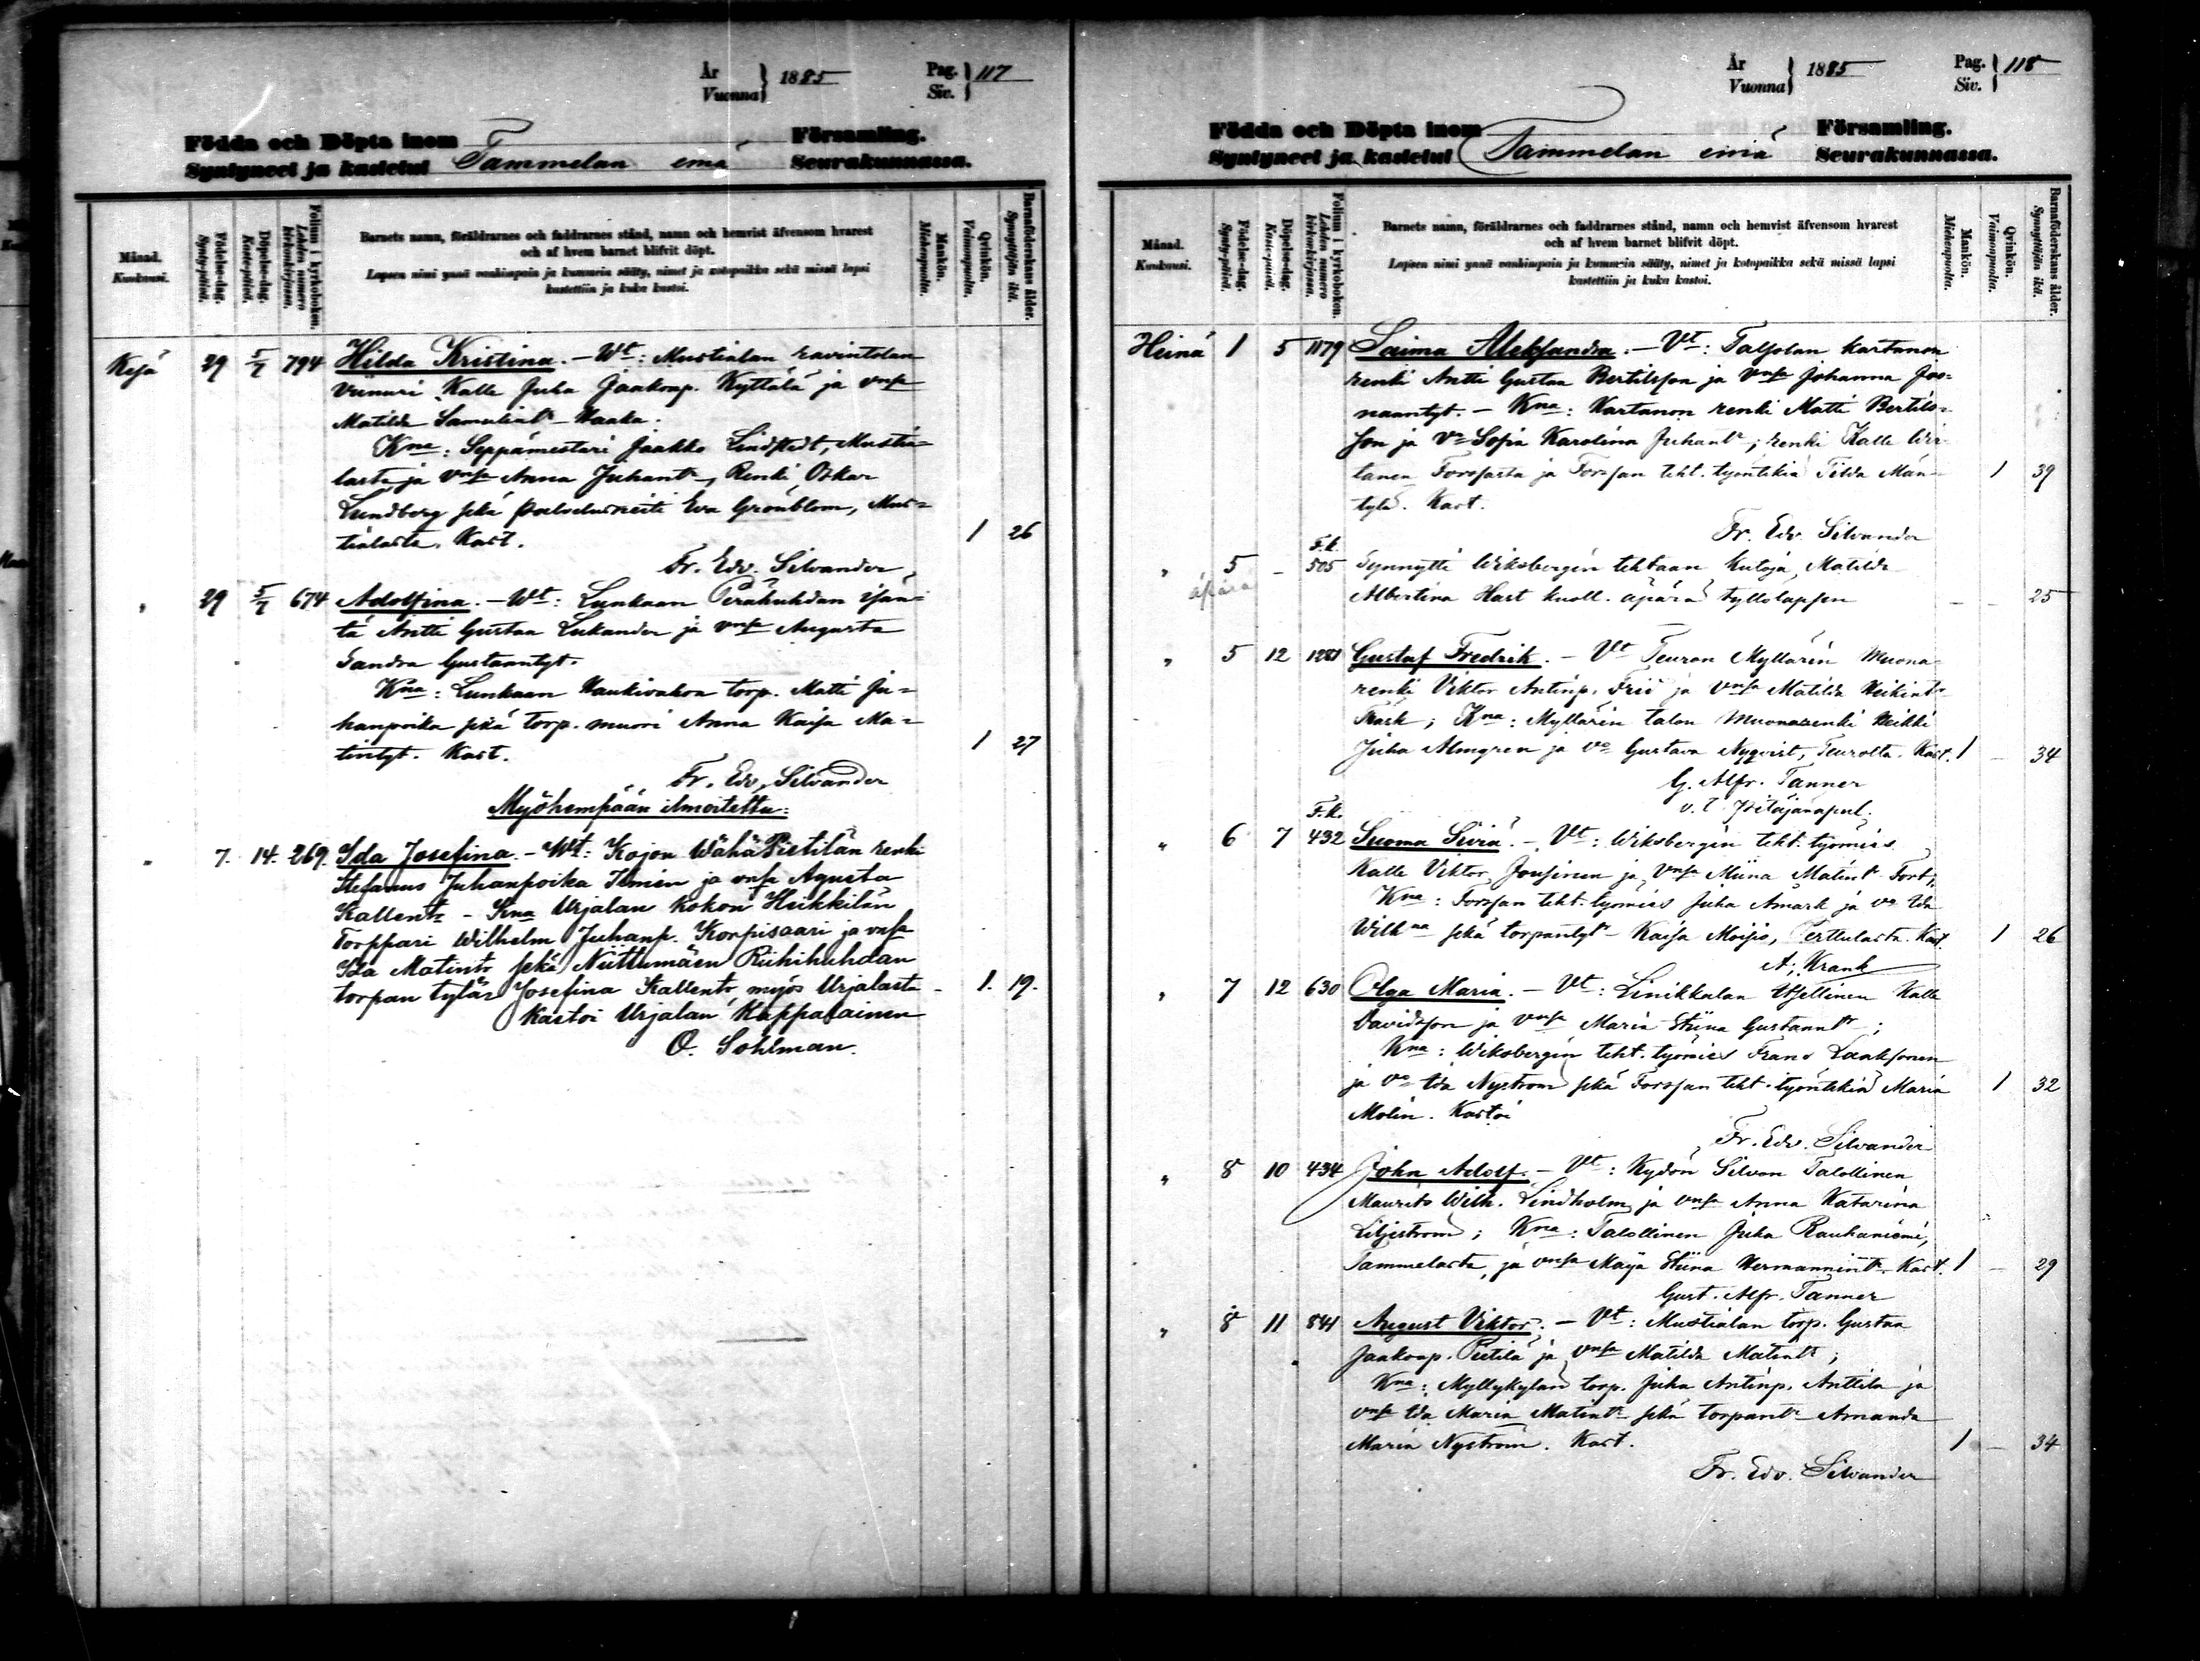 År
Vuonna } 1885
Pag.
Siv. } 117
Födda och Döpta inom Församling.
Syntyneet ja kastetut Tammelan emä Seurakunnassa.
Månad.
Kuukausi.
Födelse-dag.
Synty-päivä.
Döpelse-dag.
Kaste-päivä.
Folium i kyrkoboken.
Lehden numero kirkonkirjassa.
Barnets namn, föräldrarnes och faddrarnes stånd, namn och hemvist äfvensom hvarest
och af hvem barnet blifvit döpt.
Lapsen nimi ynnä vanhimpain ja kummein sääty, nimet ja kotopaikka sekä missä lapsi
kastettiin ja kuka kastoi.
Mankön.
Miehenpuolta.
Qvinkön.
Vaimonpuolta.
Barnaföderskans ålder.
Synnyttäjän ikä.
Kesä 29 5/7 794 Hilda Kristina. - Wt: Mustialan ravintolan
viinuri Kalle Juha Jaakonp. Kyttälä ja vnsa
Matilda Samulintr Haaka.
Kna: Seppämestari Jaakko Lindstedt, Mustia=
lasta ja vnsa Anna Juhantr, Renki Oskar
Lundberg sekä palvelusneiti Eva Grönblom, Mus=
tialasta. Kast. 1 26
Fr. Edv. Silvander
" 29 5/7 674 Adolfina. - Wt: Lunkaan Peräkuhdan isän=
tä Antti Gustaa Lukander ja vnsa Augusta
Sandra Gustaantyt.
Kna: Lunkaan Haukivahon torp. Matti Ju=
hanpoika sekä torp. muori Anna Kaisa Ma=
tintyt. Kast. 1 27
Fr. Edv. Silvander
Myöhempään ilmoitettu:
" 7. 14. 269. Ida Josefina. - Wt: Kojon WähäPietilän renki
Stefanus Juhanpoika Ilmén ja vnsa Agusta
Kallentr - Kna Urjalan Kokon Heikkilän
Torppari Wilhelm Juhanp. Korpisaari ja vnsa
Ida Matintr sekä Niittumäen Riihihuhdan
torpan tytär Josefina Kallentr myös Urjalasta - 1. 19.
Kastoi Urjalan Kappalainen
O. Sohlman.
År
Vuonna } 1885
Pag.
Siv. } 118
Födda och Döpta inom Församling.
Syntyneet ja kastetut Tammelan emä Seurakunnassa.
Månad.
Kuukausi.
Födelse-dag.
Synty-päivä.
Döpelse-dag.
Kaste-päivä.
Folium i kyrkoboken.
Lehden numero kirkonkirjassa.
Barnets namn, föräldrarnes och faddrarnes stånd, namn och hemvist äfvensom hvarest
och af hvem barnet blifvit döpt.
Lapsen nimi ynnä vanhimpain ja kummein sääty, nimet ja kotopaikka sekä missä lapsi
kastettiin ja kuka kastoi.
Mankön.
Miehenpuolta.
Qvinkön.
Vaimonpuolta.
Barnaföderskans ålder.
Synnyttäjän ikä.
Heinä 1 5 1179 Saima Aleksandra. - Vt: Talsolan kartanon
renki Antti Gustaa Bertilsson ja Vnsa Johanna Joo=
naantyt. - Kna: Kartanon renki Matti Bertils=
son ja Vo Sofia Karolina Juhantr; renki Kalle Wir=
tanen Forssasta ja Forssan teht. työntekiä Tilda Män= 1 39
tylä. Kast.
Fr. Edv. Silvander
F.k.
" 5 - 505 Synnytti Wiksbergin tehtaan kutoja Matilda
äpärä Albertina Hast kuoll. äpärä tyttölapsen - - 25
" 5 12 1281 Gustaf Fredrik. - Vt Teuron Myllärin Muona=
renki Viktor Antinp. Frid ja Vnsa Matilda Heikintr
Stark; Kna: Myllärin talon Muonarenki Heikki
Juha Almgren ja vo Gustava Nyqvist, Teurolta. Kast. 1 - 34
G. Alfr. Tanner
v.t. pitäjänapul.
F.k.
" 6 7 432 Suoma Siviä. - Vt: Wiksbergin teht. työmies
Kalle Viktor Jousinen ja Vnsa Miina Matintr Fort;
Kna: Forssan teht. työmies Juha Amark ja vo Ida
Wilhna sekä torpantyt Kaisa Moisio, Perttulasta. Kast. 1 26
A. Krank
" 7 12 630 Olga Maria. - Vt: Linikkalan Itsellinen Kalle
Davidsson ja vnsa Maria Stiina Gustaantr;
Kna: Wiksbergin teht. työmies Frans Laaksonen
ja vo Ida Nyström sekä Forssan teht. työntekiä Maria 1 32
Molin. Kastoi
Fr. Edv. Silvander
" 8 10 434 John Adolf. - Vt: Kydön Silvon Talollinen
Maurits Wilh. Lindholm ja vnsa Anna Katarina
Liljeström; Kna: Talollinen Juha Rauhaniemi,
Tammelasta, ja vnsa Maija Stiina Hermannintr. Kast. 1 - 29
Gust. Alfr. Tanner
" 8 11 841 August Viktor. - Vt: Mustialan torp. Gustaa
Jaakonp. Pietilä ja vnsa Matilda Matintr;
Kna: Myllykylän torp. Juha Antinp. Anttila ja
vnsa Ida Maria Matintr sekä torpantr Amanda
Maria Nyström. Kast. 1 - 34
Fr. Edv. Silvander